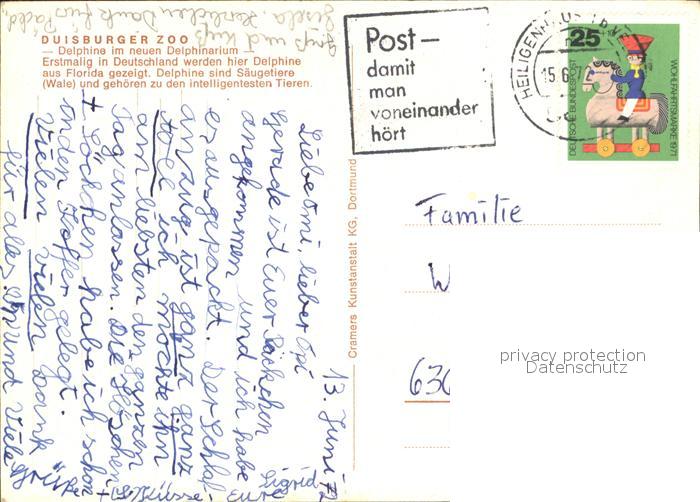 Gisela. Herzlichen Dank für Päckch.
Gruß und Kuß
DUISBURGER ZOO
— Delphine im neuen Delphinarium —
Erstmalig in Deutschland werden hier Delphine
aus Florida gezeigt. Delphine sind Säugetiere
(Wale) und gehören zu den intelligentesten Tieren.
13. Juni 72
Liebe Omi, lieber Opi
Gerade ist Euer Päckchen
angekommen und ich habe
es ausgepackt. Der Schlaf-
anzug ist ganz ganz
toll ich möchte ihn
am liebsten den ganzen
Tag anlassen. Die Höschen
+ Söckchen habe ich schon
in den Koffer gelegt.
Vielen vielen Dank
für alles. Und viele
Grüße + Küsse, Eure Sigrid
Cramers Kunstanstalt KG, Dortmund
Post —
damit
man
voneinander
hört
HEILIGENHAUS
15.6.
25
DEUTSCHE BUNDESPOST
WOHLFAHRTSMARKE 1971
Familie
W
636
privacy protection
Datenschutz